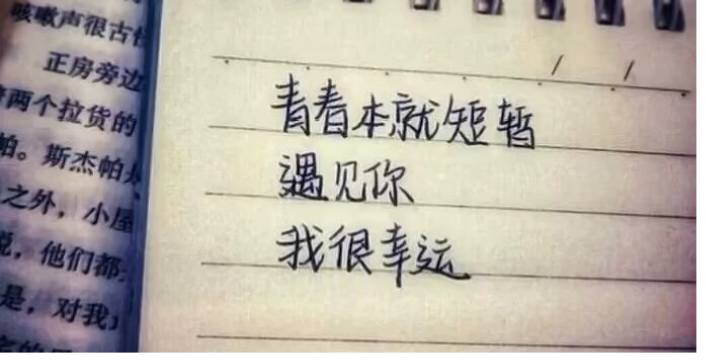 咳嗽声很古
正房旁边
两个拉货的
帕。斯杰帕
之外，小屋
说，他们都
是，对我
青春本就短暂
遇见你
我很幸运